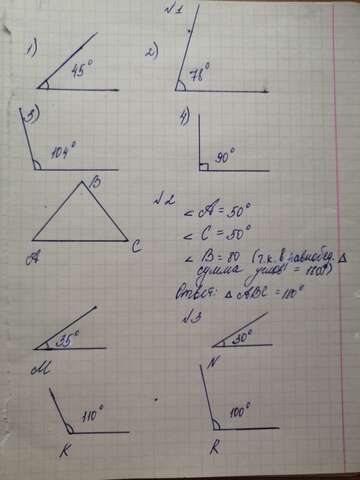 №1
1) 45°
2) 78°
3) 104°
4) 90°
№2
B
A
C
∠ A = 50°
∠ C = 50°
∠ B = 80 (т.к. в равнобед. △
сумма углов = 180°)
Ответ: △ ABC = 180°
№3
35°
M
30°
N
110°
K
100°
R